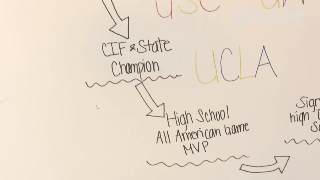 USC
CIF & State
Champion
UCLA
High School
All American Game
MVP
Sign
high